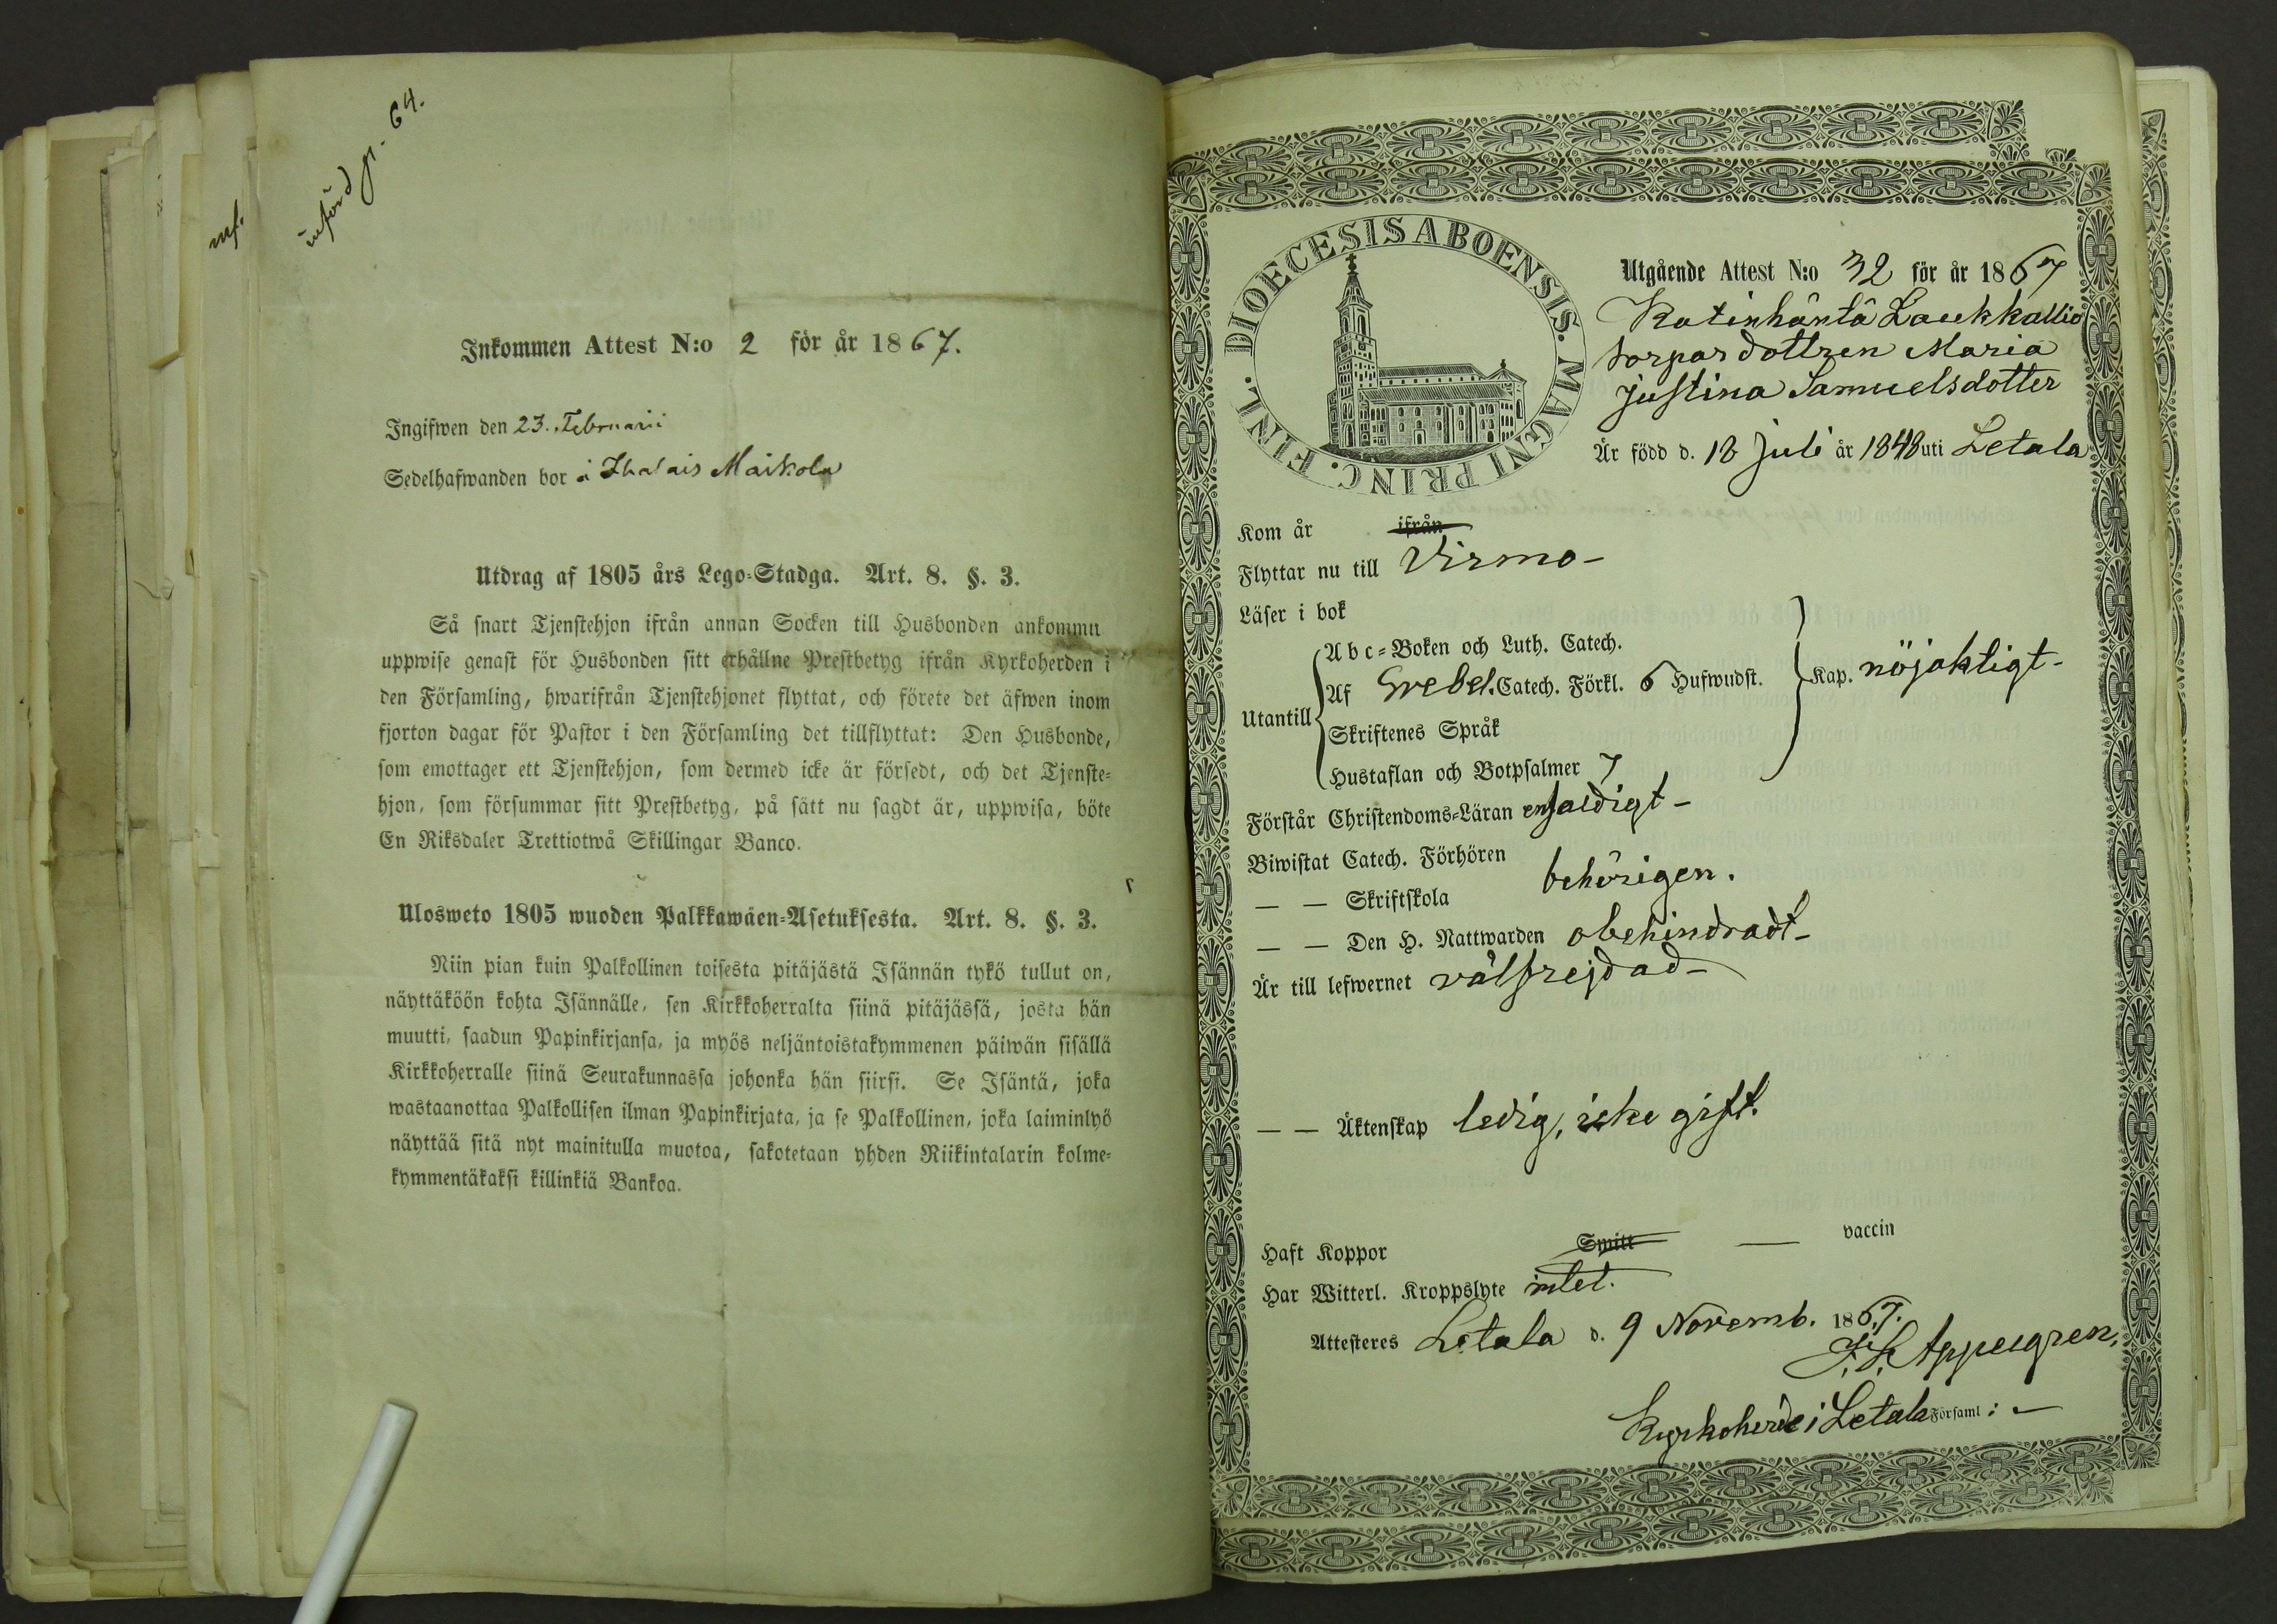 mf.
införd p. 64.
Inkommen Attest N:o 2 för år 1867.
Ingifwen den 23. Februarii
Sedelhafwanden bor å Ihalais Maikola
Utdrag af 1805 års Lego-Stadga. Art. 8. §. 3.
Så snart Tjenstehjon ifrån annan Socken till Husbonden ankommit
uppwise genast för Husbonden sitt erhållne Prestbetyg ifrån Kyrkoherden i
den Församling, hwarifrån Tjenstehjonet flyttat, och förete det äfwen inom
fjorton dagar för Pastor i den Församling det tillflyttat: Den Husbonde,
som emottager ett Tjenstehjon, som dermed icke är försedt, och det Tjenste-
hjon, som försummar sitt Prestbetyg, på sätt nu sagdt är, uppwisa, böte
En Riksdaler Trettiotwå Skillingar Banco.
Ulosweto 1805 wuoden Palkkawäen-Asetuksesta. Art. 8. §. 3.
Niin pian kuin Palkollinen toisesta pitäjästä Isännän tykö tullut on,
näyttäköön kohta Isännälle, sen Kirkkoherralta siinä pitäjässä, josta hän
muutti, saadun Papinkirjansa, ja myös neljäntoistakymmenen päiwän sisällä
Kirkkoherralle siinä Seurakunnassa johonka hän siirsi. Se Isäntä, joka
wastaanottaa Palkollisen ilman Papinkirjata, ja se Palkollinen, joka laiminlyö
näyttää sitä nyt mainitulla muotoa, sakotetaan yhden Riikintalarin kolme-
kymmentäkaksi killinkiä Bankoa.
DIOECESIS ABOENSIS. MAGNI PRINC. FINL.
Utgående Attest N:o 32 för år 1867
Katinhäntä Laukkallio
torpardottren Maria
Justina Samuelsdotter
Är född d. 18 Juli år 1848 uti Letala
Kom år ifrån
Flyttar nu till Virmo-
Läser i bok
Utantill
Abc-Boken och Luth. Catech.
Af Grebel. Catech. Förkl. 6 Hufwudst.
Skriftenes Språk
Hustaflan och Botpsalmer 7
Kap. nöjaktigt-
Förstår Christendoms-Läran enfaldigt-
Biwistat Catech. Förhören
— — Skriftskola behörigen.
— — Den H. Nattwarden obehindradt-
Är till lefwernet välfrejdad-
— — Äktenskap ledig, icke gift.
Haft Koppor Smitt — vaccin
Har Witterl. Kroppslyte intet.
Attesteres Letala d. 9 Novemb. 1867.
F. F. Appelgren,
Kyrkoherde i Letala Församl: -